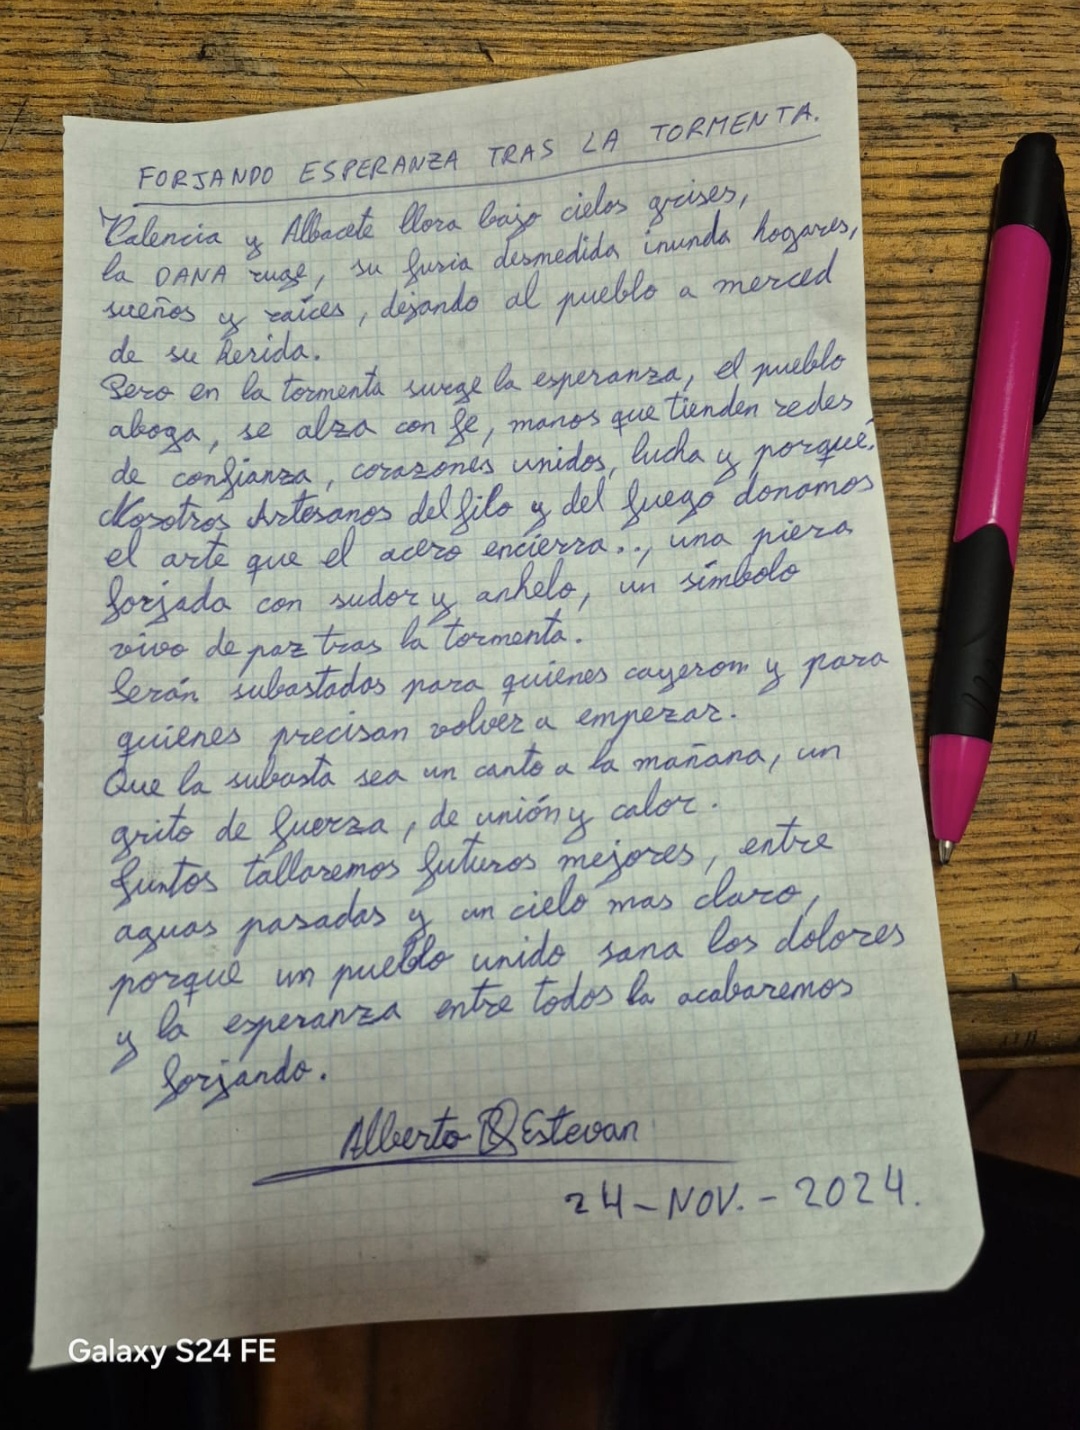 FORJANDO ESPERANZA TRAS LA TORMENTA.
Valencia y Albacete llora bajo cielos grises,
la DANA ruge, su furia desmedida inunda hogares,
sueños y raíces, dejando al pueblo a merced
de su herida.
Pero en la tormenta surge la esperanza, el pueblo
aboga, se alza con fe, manos que tienden redes
de confianza, corazones unidos, lucha y porqué.
Nosotros Artesanos del filo y del fuego donamos
el arte que el acero encierra.., una pieza
forjada con sudor y anhelo, un símbolo
vivo de paz tras la tormenta.
Serán subastadas para quiénes cayerom y para
quienes precisan volver a empezar.
Que la subasta sea un canto a la mañana, un
grito de fuerza, de unión y calor.
Juntos tallaremos futuros mejores, entre
aguas pasadas y un cielo mas claro,
porque un pueblo unido sana los dolores
y la esperanza entre todos la acabaremos
forjando.
Alberto Estevan
24-NOV.-2024.
Galaxy S24 FE